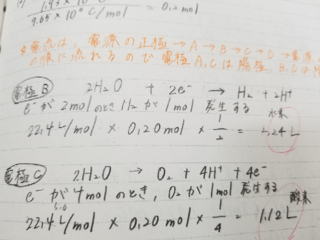 1.93 × 10⁴ C
9.65 × 10⁴ C/mol = 0.20 mol
※電流は、電源の正極→A→B→C→D→電源
の順に流れるので電極A,Cは陽極、B,Dは陰
電極B 2H₂O + 2e⁻ → H₂ + 2H⁺
e⁻が2molのときH₂が1mol発生する
22.4L/mol × 0.20mol × 1/2 = 2.24L
水素
電極C 2H₂O → O₂ + 4H⁺ + 4e⁻
e⁻が4molのとき、O₂が1mol発生する
22.4L/mol × 0.20mol × 1/4 = 1.12L
酸素